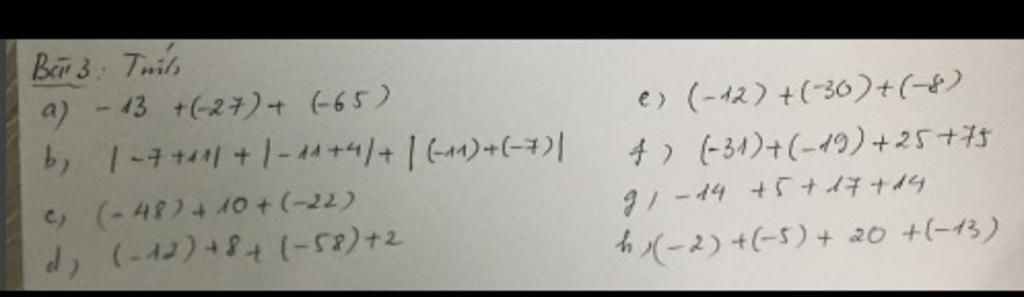 Bài 3: Tính
a) -13 +(-27)+ (-65)
b, |-7+11| + |-11+4| + |(-11)+(-7)|
c, (-48)+10+(-22)
d, (-12)+8+(-58)+2
e, (-12)+(-30)+(-8)
f, (-31)+(-19)+25+75
g, -14 +5+17+14
h, (-2)+(-5)+ 20 +(-13)